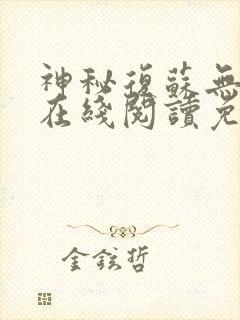 神秘復蘇無
在綫閱讀免
金鉉哲